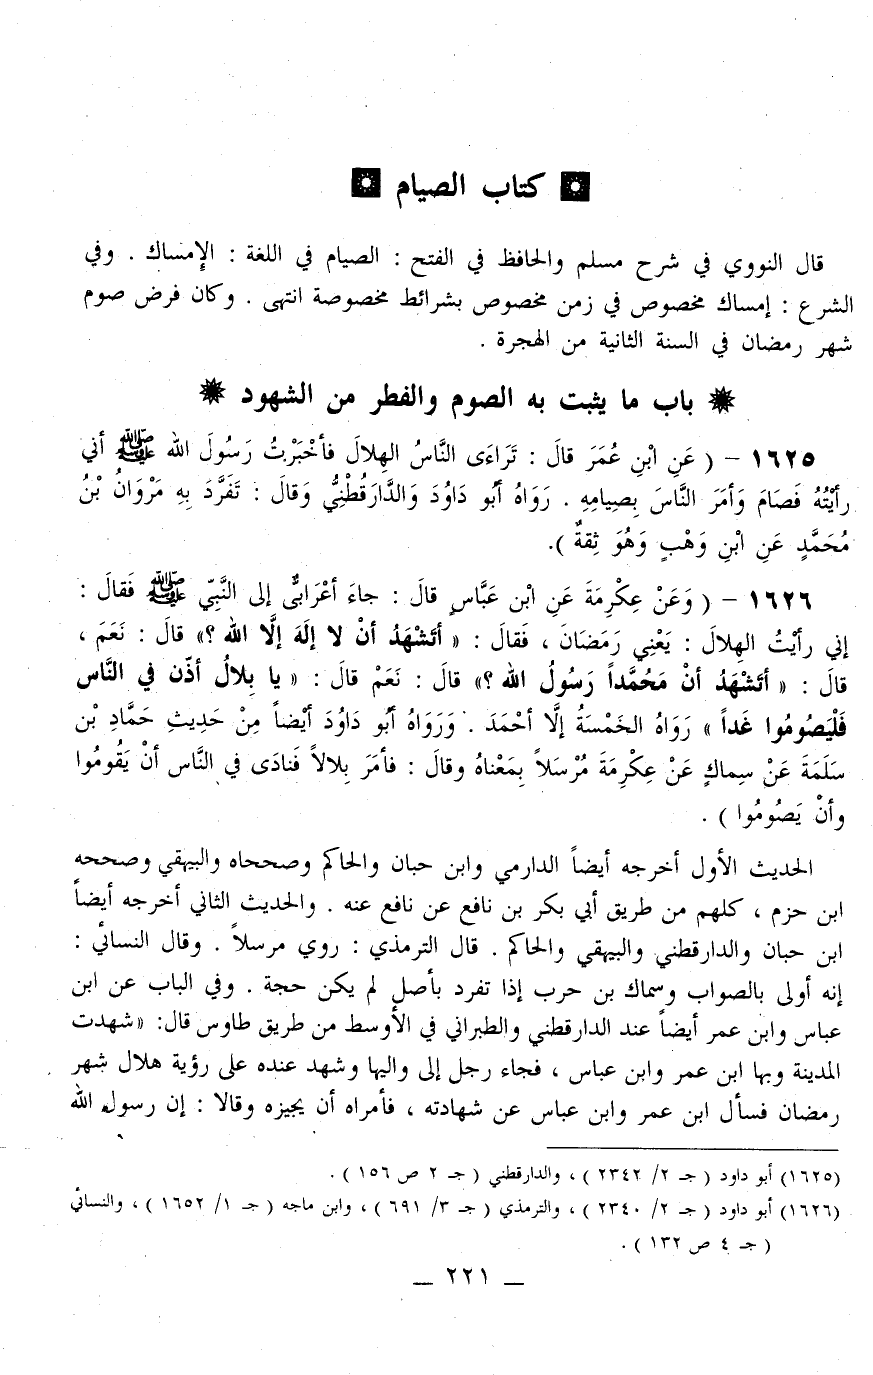 كتاب الصيام
قال النووي في شرح مسلم والحافظ في الفتح : الصيام في اللغة : الإمساك . وفي
الشرع : إمساك مخصوص في زمن مخصوص بشرائط مخصوصة انتهى . وكان فرض صوم
شهر رمضان في السنة الثانية من الهجرة .
باب ما يثبت به الصوم والفطر من الشهود
١٦٢٥ – ( عَنِ ابْنِ عُمَرَ قالَ : تَرَاءَى النَّاسُ الهِلالَ فأخْبَرْتُ رَسُولَ الله ﷺ أني
رأيْتُهُ فَصَامَ وَأمَرَ النَّاسَ بِصِيامِهِ . رَوَاهُ أبُو دَاوُدَ وَالدَّارَقُطْنِيُّ وَقالَ : تَفَرَّدَ بِهِ مَرْوَانُ بْنُ
مُحَمَّدٍ عَنِ ابْنِ وَهْبٍ وَهُوَ ثِقةٌ ).
١٦٢٦ – ( وَعَنْ عِكْرِمَةَ عَنِ ابْن عَبَّاسٍ قالَ : جاءَ أعْرَابيٌّ إلى النَّبِيّ ﷺ فَقالَ :
إني رأيْتُ الهِلالَ : يَعْنِي رَمَضَانَ ، فَقالَ : « أتَشْهَدُ أنْ لا إلَهَ إلَّا الله ؟» قالَ : نَعَمَ ،
قالَ : « أتَشْهَدُ أنْ مَحُمَّداً رَسُولُ الله ؟» قالَ : نَعَمْ قالَ : « يا بِلالُ أذّن في النَّاس
فَلْيَصُومُوا غَداً » رَوَاهُ الخَمْسَةُ إلَّا أحْمَدَ . وَرَوَاهُ أبُو دَاوُدَ أيْضاً مِنْ حَدِيثِ حَمَّادِ بْن
سَلَمَةَ عَنْ سِماكٍ عَنْ عِكْرِمَةَ مُرْسَلاً بِمَعْناهُ وقالَ : فأمَرَ بِلالاً فَنادَى في النَّاس أنْ يَقُومُوا
وأنْ يَصُومُوا ) .
الحديث الأول أخرجه أيضاً الدارمي وابن حبان والحاكم وصححاه والبيهقي وصححه
ابن حزم ، كلهم من طريق أبي بكر بن نافع عن نافع عنه . والحديث الثاني أخرجه أيضاً
ابن حبان والدارقطني والبيهقي والحاكم . قال الترمذي : روي مرسلاً . وقال النسائي :
إنه أولى بالصواب وسماك بن حرب إذا تفرد بأصل لم يكن حجة . وفي الباب عن ابن
عباس وابن عمر أيضاً عند الدارقطني والطبراني في الأوسط من طريق طاوس قال: «شهدت
المدينة وبها ابن عمر وابن عباس ، فجاء رجل إلى واليها وشهد عنده على رؤية هلال شهر
رمضان فسأل ابن عمر وابن عباس عن شهادته ، فأمراه أن يجيزه وقالا : إن رسول الله
(١٦٢٥) أبو داود ( جـ ٢/ ٢٣٤٢ ) ، والدارقطني ( جـ ٢ ص ١٥٦ ) .
(١٦٢٦) أبو داود ( جـ ٢/ ٢٣٤٠ ) ، والترمذي ( جـ ٣/ ٦٩١ ) ، وابن ماجه ( جـ ١/ ١٦٥٢ ) ، والنسائي
( جـ ٤ ص ١٣٢ ) .
— ٢٢١ —